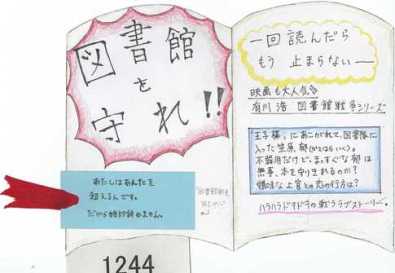 図書館
を
守れ!!
あたしはあんたを
超えるんです。
だから絶対辞めません。
一回読んだら
もう止まらない―
映画も大人気
有川浩 図書館戦争シリーズ
"王子様"にあこがれて、図書隊に
入った笠原郁(かさはらいく)。
不器用だけど、まっすぐな郁は
無事、本を守りきれるのか?
嫌味な上官との恋の行方は?
ハラハラドキドキの戦うラブストーリー。
1244